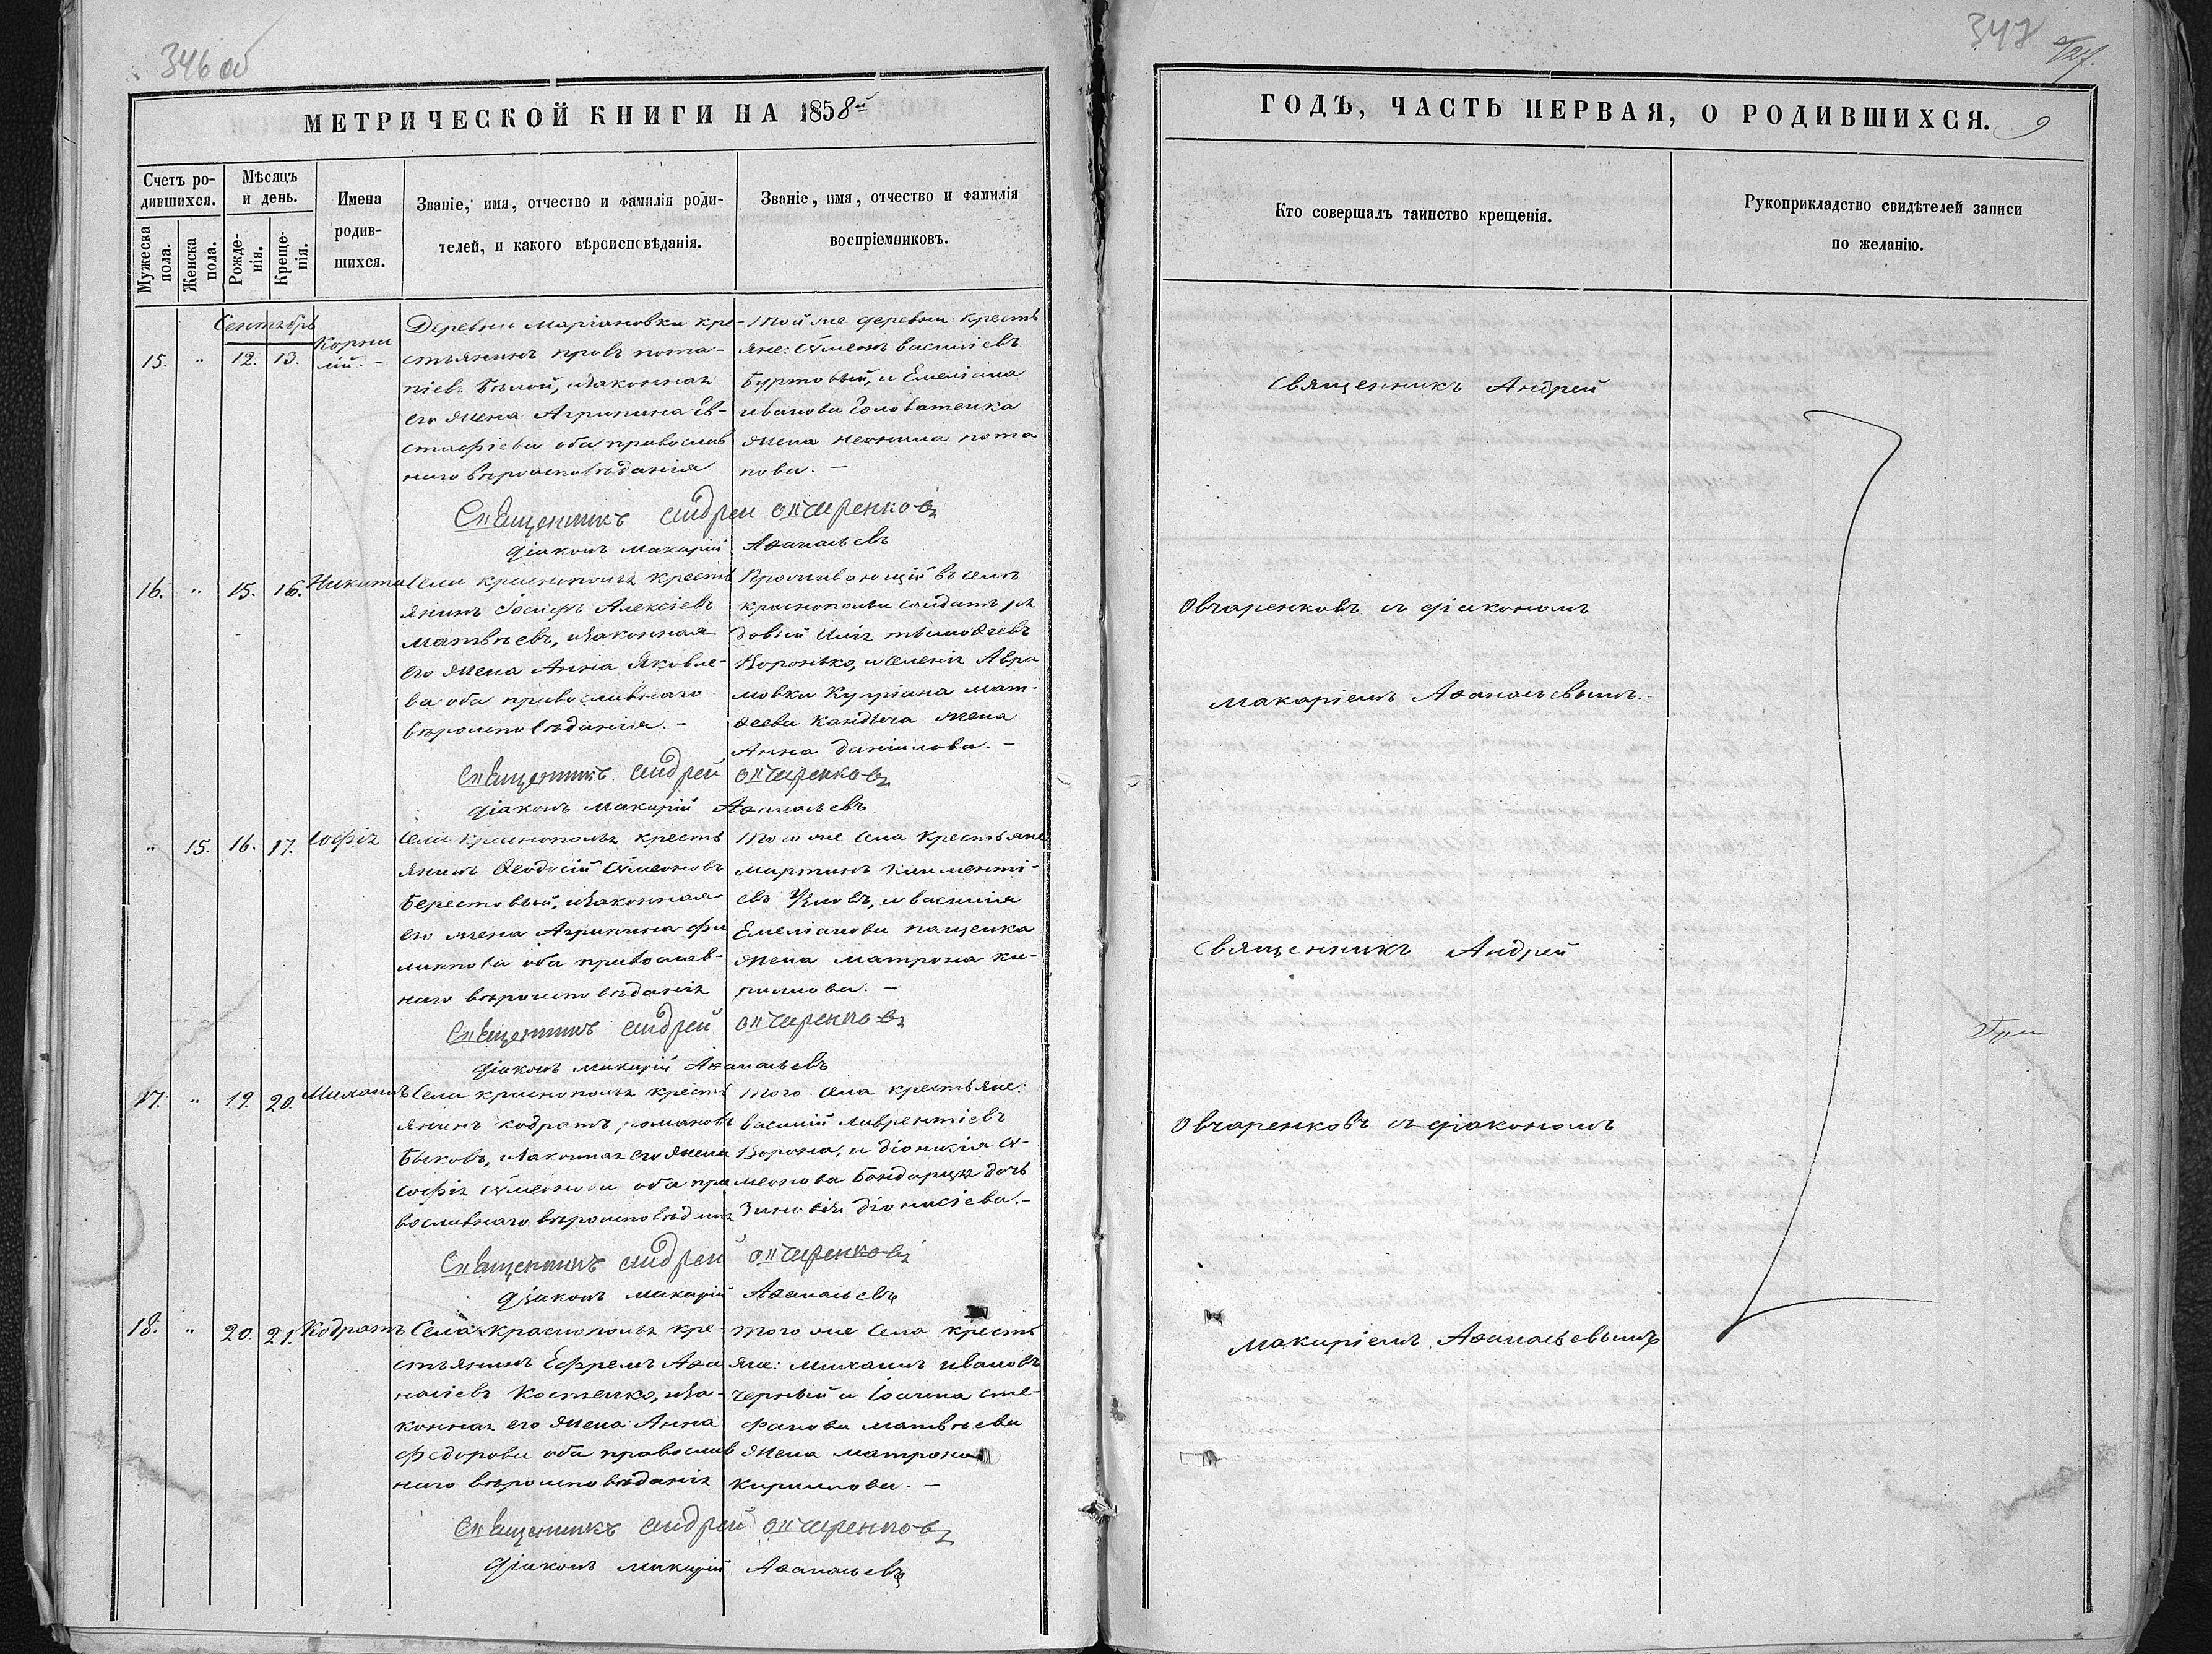 346 об
МЕТРИЧЕСКОЙ КНИГИ НА 1858й
Счетъ ро-
дившихся.
Мѣсяцъ
и день.
Мужеска
пола.
Женска
пола.
Рожде-
нія.
Креще-
нія.
Имена
родив-
шихся.
Званіе, имя, отчество и фамилія роди-
телей, и какого вѣроисповѣданія.
Званіе, имя, отчество и фамилія
воспріемниковъ.
Сентябрь
15. " 12. 13. Корни
лій. -
Деревни Маріановки кре-
стьянинъ
піевъ Бѣлой, и законная
его жена Агрипина Ев-
стафіева оба православ
наго вѣроисповѣданія
Той же деревни кресть
яне: Сѵмеонъ Василіевъ
Буртовый, и Емеліана
Иванова Головатенка
жена Неонила Пота
пова. —
Священникъ Андрей Овчаренковъ
Діаконъ Макарій Аѳанасьевъ
16. " 15. 16. Никита
Села Краснополья кресть
янинъ Іосифъ Алексіевъ
Матвѣевъ, и законная
его жена Анна Яковле-
ва оба православнаго
вѣроисповѣданія. -
Проживающій въ селѣ
Краснопольи солдатъ ря
довый Илія Тимоѳеевъ
Воронько, и селенія Авра
мовки Купріана Мат-
ѳеева жена
Анна Даніилова. —
Священникъ Андрей Овчаренковъ
Діаконъ Макарій Аѳанасьевъ
" 15. 16. 17. Софія
Села Краснополья кресть
янинъ Ѳеодосій Сѵмеоновъ
Берестовый, и законная
его жена Агрипина Фи
липпова оба православ-
наго вѣроисповѣданія
Того же села крестьяне
Мартинъ Климентi-
евъ и Василія
Емеліанова Пащенка
жена Матрона Ки-
рилова. —
Священникъ Андрей Овчаренковъ
Діаконъ Макарій Аѳанасьевъ
17. " 19. 20. Михаилъ
Села Краснополья кресть
янинъ Кодратъ Романовъ
Быковъ, и законная его жена
Софія Сѵмеонова оба пра
вославнаго вѣроисповѣданія
Того села крестьяне:
Василій Лаврентіевъ
Ворона, и Діонисія Сѵ-
меонова Бондаря дочь
Зиновія Діонисіева. —
Священникъ Андрей Овчаренковъ
Діаконъ Макарій Аѳанасьевъ
18. " 20. 21. Кодратъ
Села Краснополья кре-
стьянинъ Ефремъ Аѳа
насіевъ Костенко, и за-
конная его жена Анна
Федорова оба православ
наго вѣроисповѣданія
Того же села кресть
яне: Михаилъ Ивановъ
Черный и Іоанна Сте-
фанова Матвѣева
жена Матрона
Кирилова. —
Священникъ Андрей Овчаренковъ
Діаконъ Макарій Аѳанасьевъ
347
ГОДЪ, ЧАСТЬ ПЕРВАЯ, О РОДИВШИХСЯ. 9
Кто совершалъ таинство крещенія.
Рукоприкладство свидѣтелей записи
по желанію.
Священникъ Андрей
Овчаренковъ съ діакономъ
Макаріемъ Аѳанасьевымъ.
Священникъ Андрей
Овчаренковъ съ діакономъ
Макаріемъ Аѳанасьевымъ